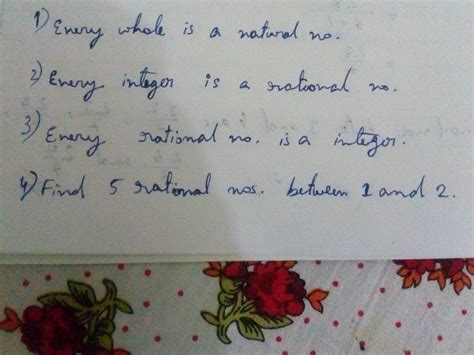 1) Every whole is a natural no.
2) Every integer is a rational no.
3) Every rational no. is a integer.
4) Find 5 rational nos. between 1 and 2.